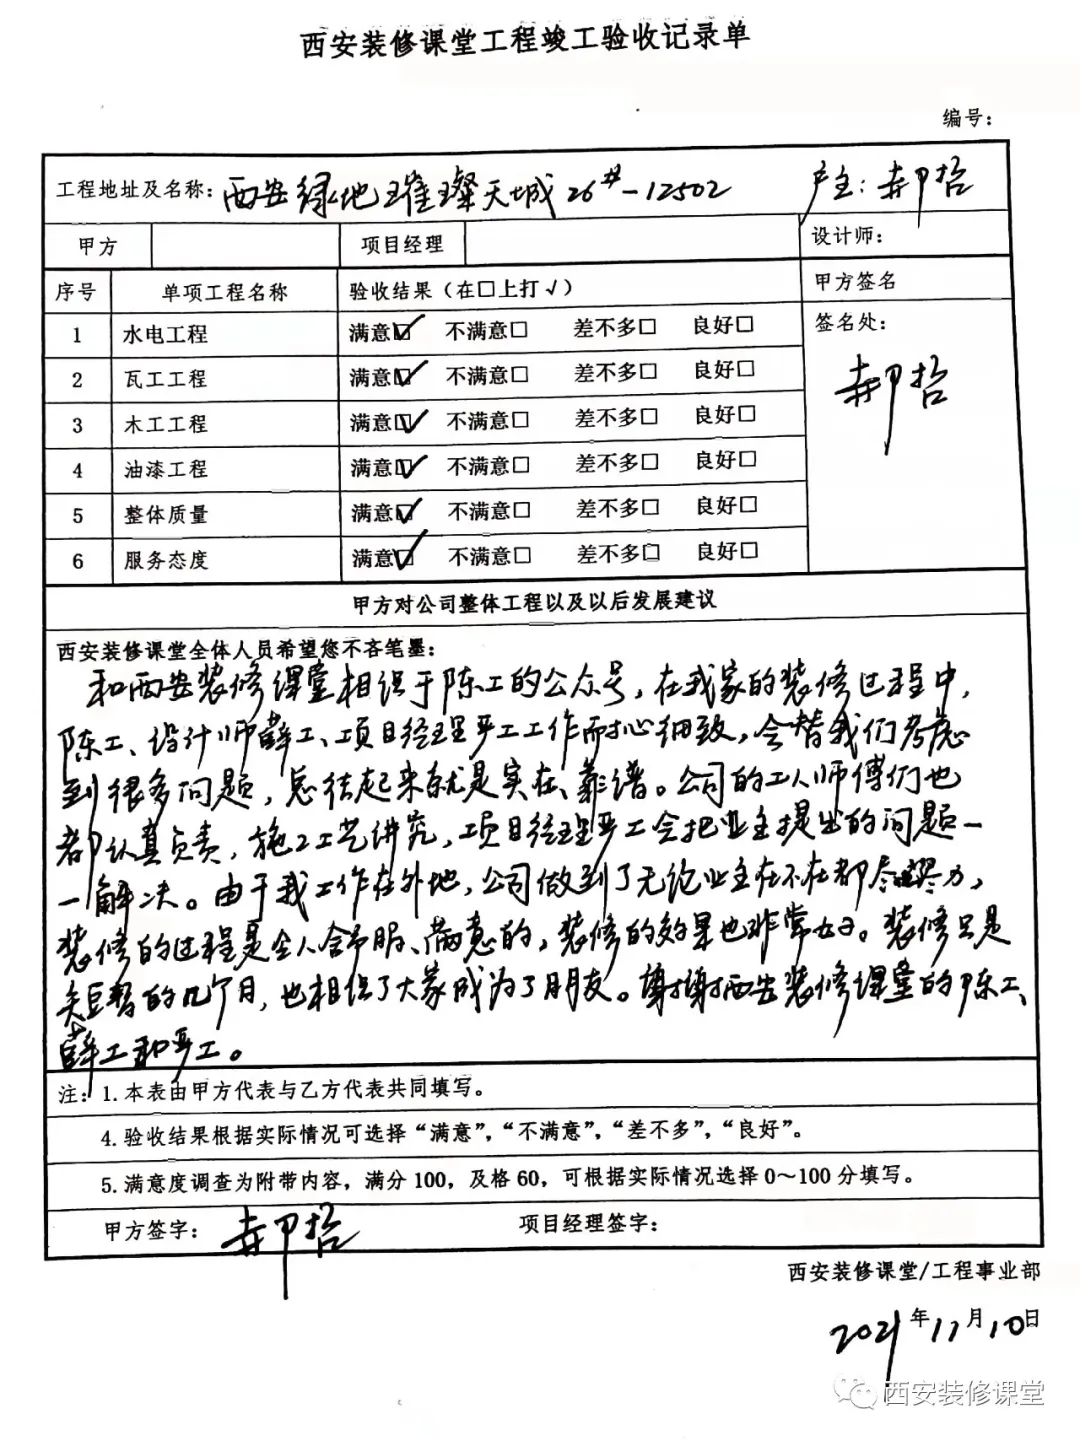 西安装修课堂工程竣工验收记录单
编号：
工程地址及名称：西安绿地璀璨天城26#-12502 户主：
甲方 项目经理 设计师：
序号 单项工程名称 验收结果（在□上打√） 甲方签名
1 水电工程 满意☑ 不满意□ 差不多□ 良好□ 签名处：
2 瓦工工程 满意☑ 不满意□ 差不多□ 良好□
3 木工工程 满意☑ 不满意□ 差不多□ 良好□
4 油漆工程 满意☑ 不满意□ 差不多□ 良好□
5 整体质量 满意☑ 不满意□ 差不多□ 良好□
6 服务态度 满意☑ 不满意□ 差不多□ 良好□
甲方对公司整体工程以及以后发展建议
西安装修课堂全体人员希望您不吝笔墨：
和西安装修课堂相识于陈工的公众号，在我家的装修过程中，
陈工、设计师薛工、项目经理严工工作耐心细致，会替我们考虑
到很多问题，总结起来就是实在、靠谱。公司的工人师傅们也
都认真负责，施工工艺讲究，项目经理严工会把业主提出的问题一
一解决。由于我工作在外地，公司做到了无论业主在不在都尽力，
装修的过程是令人舒服、满意的，装修的效果也非常好。装修只是
短暂的几个月，也相识了大家成为了朋友。谢谢西安装修课堂的陈工、
薛工和严工。
注：1.本表由甲方代表与乙方代表共同填写。
4.验收结果根据实际情况可选择“满意”，“不满意”，“差不多”，“良好”。
5.满意度调查为附带内容，满分100，及格60，可根据实际情况选择0～100分填写。
甲方签字： 项目经理签字：
西安装修课堂/工程事业部
2021年11月10日
西安装修课堂